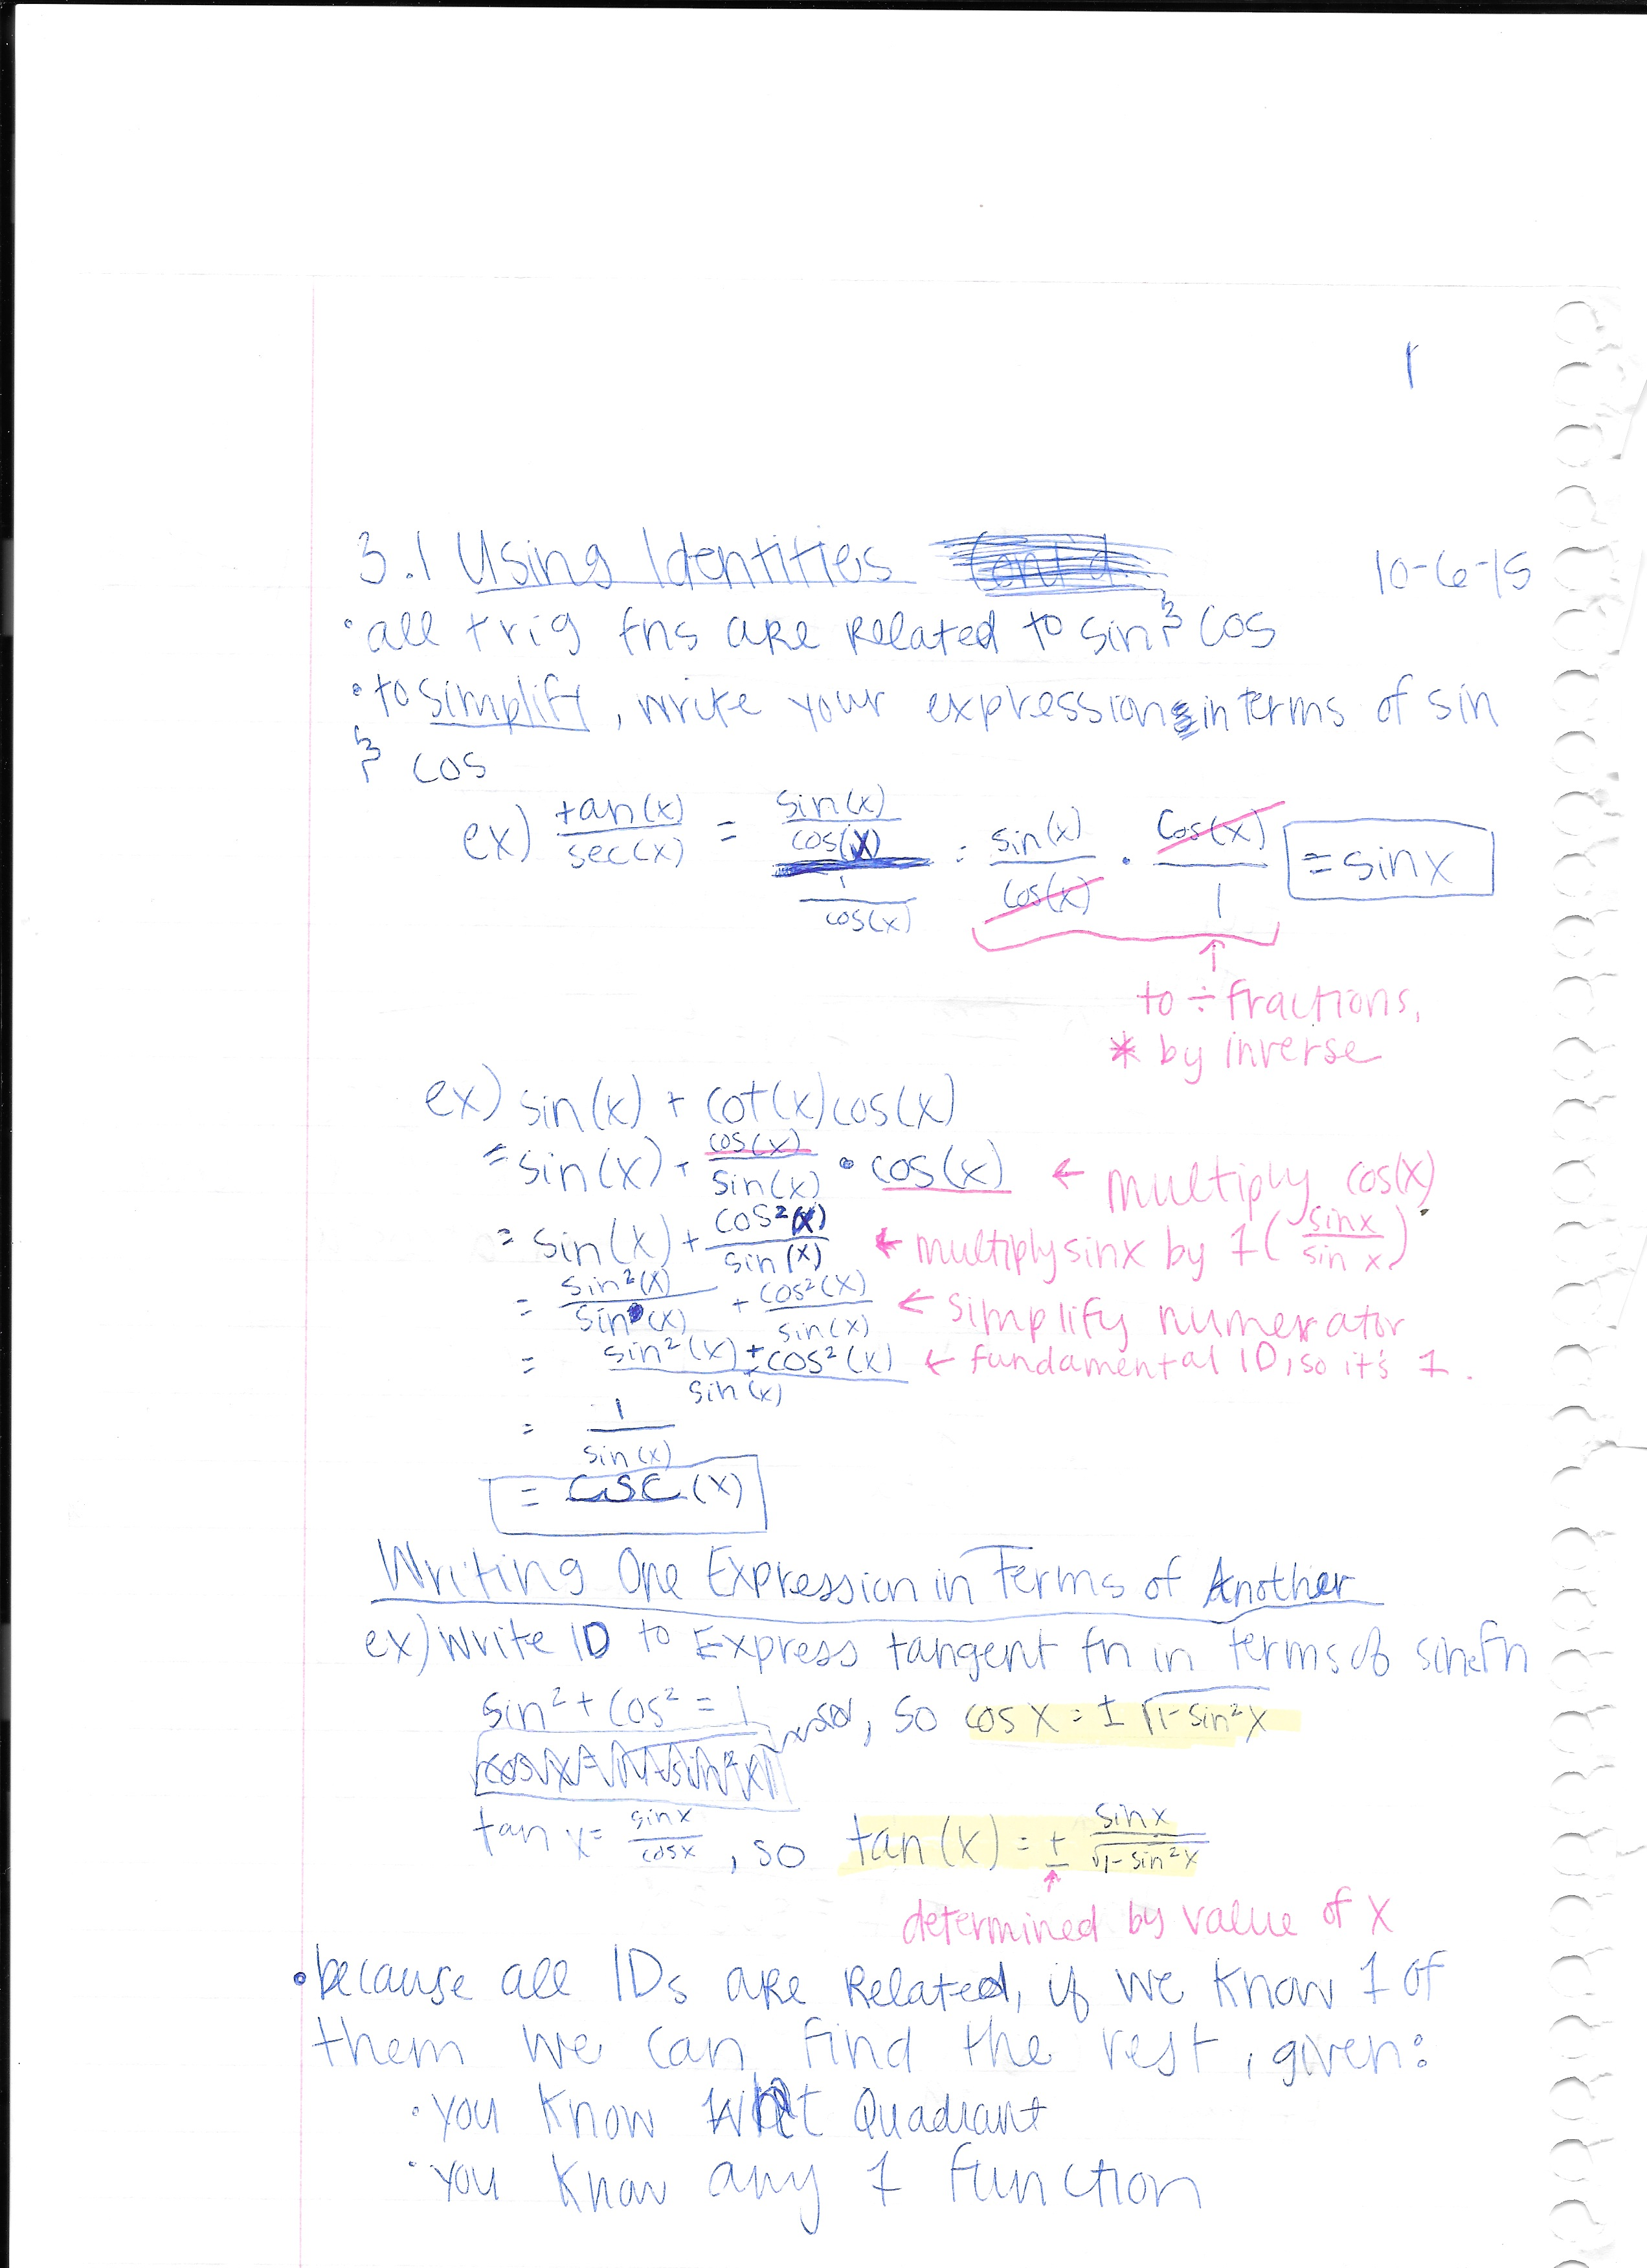 1
3.1 Using Identities Cont'd 10-6-15
• all trig fns are related to sin & cos
• to simplify, write your expression in terms of sin
& cos
ex) tan(x)/sec(x) = (sin(x)/cos(x))/(1/cos(x)) = sin(x)/cos(x) · cos(x)/1 = sinx
↑
to ÷ fractions,
* by inverse
ex) sin(x) + cot(x)cos(x)
= sin(x) + cos(x)/sin(x) • cos(x) ← multiply cos(x)
= sin(x) + cos²(x)/sin(x) ← multiply sinx by 1 (sinx/sin x)
= sin²(x)/sin(x) + cos²(x)/sin(x) ← simplify numerator
= (sin²(x) + cos²(x))/sin(x) ← fundamental ID, so it's 1.
= 1/sin(x)
= csc(x)
Writing One Expression in Terms of Another
ex) Write ID to Express tangent fn in terms of sine fn
sin² + cos² = 1, so cos x = ± √1-sin²x
tan x = sinx/cosx, so tan(x) = ± sinx/√1-sin²x
↑
determined by value of x
• because all IDs are related, if we know 1 of
them we can find the rest, given:
• you know what Quadrant
• you know any 1 function